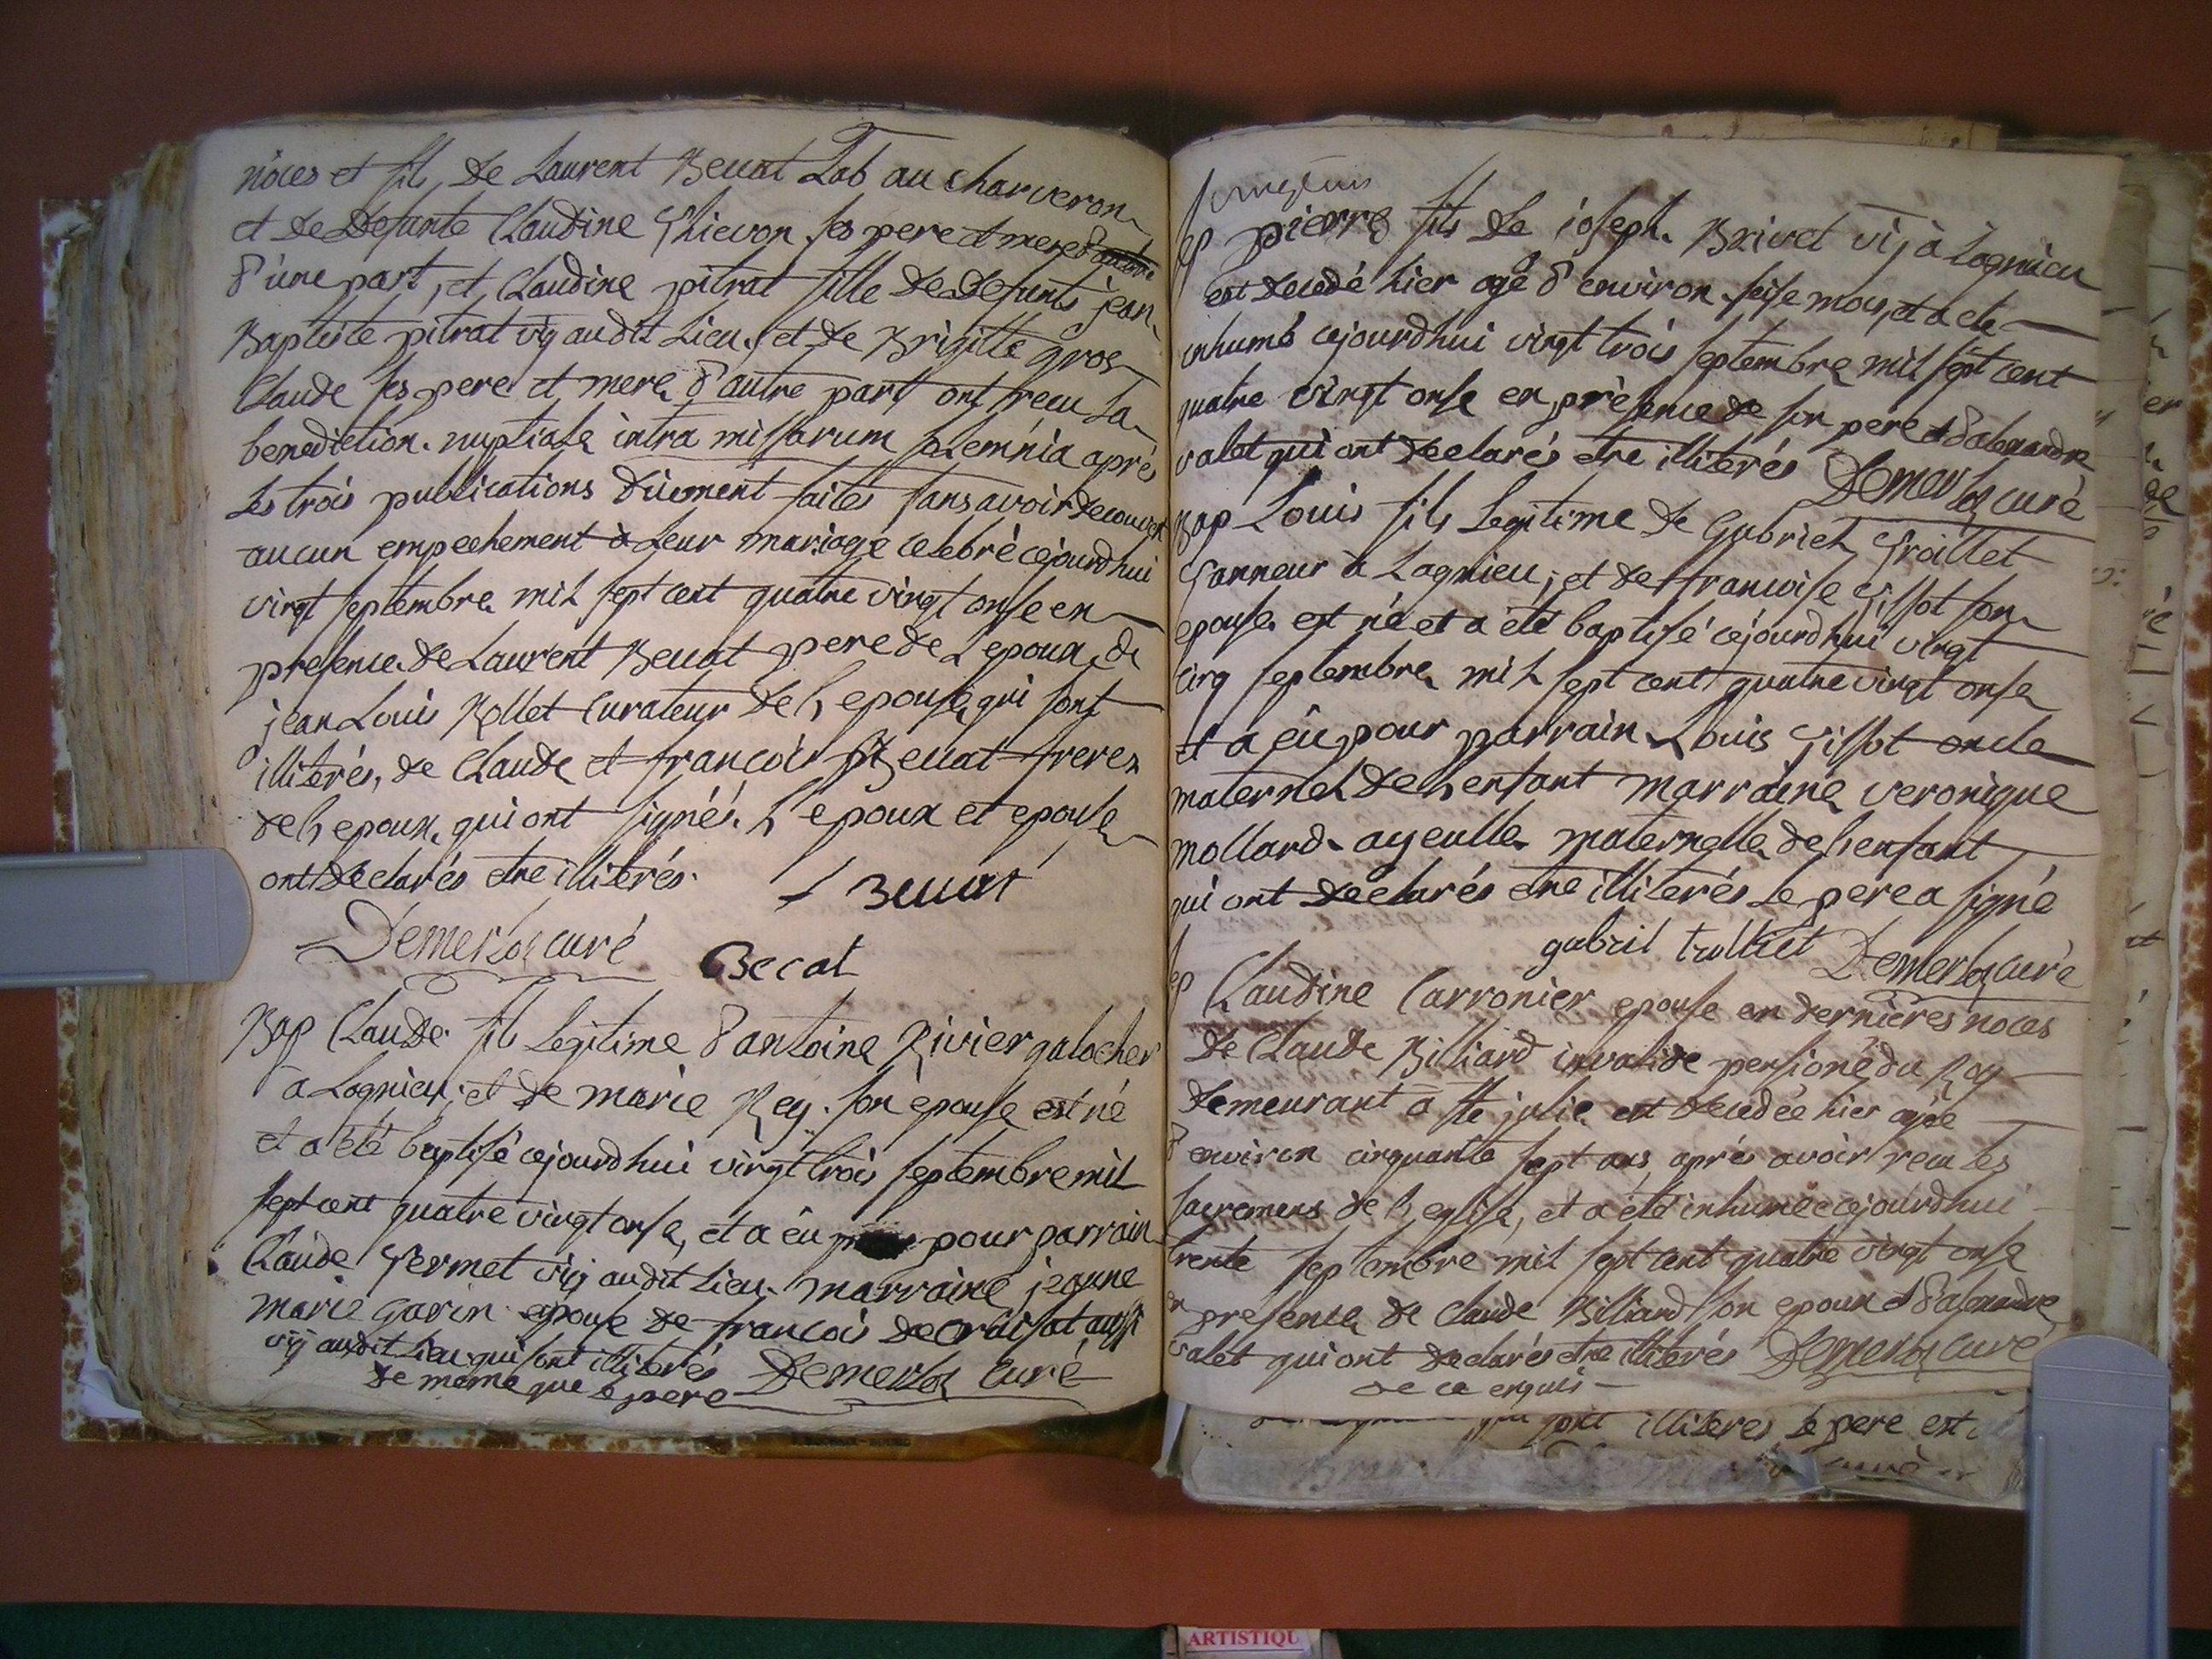 nôces et fils de Laurent Beuat Lab au charveron
et de defunte Claudine Thievon ses pere et mere
d'une part, et Claudine pitrat fille de defunts jean
Baptiste pitrat vig audit Lieu, et de Brigitte gros
Claude ses pere et mere d'autre part ont recu la
benediction nuptiale intra missarum solemnia aprés
Les trois publications düement faites sans avoir decouvert
aucun empechement à Leur mariage celebré cejourdhui
vingt septembre mil sept cent quatre vingt onse en
presence de Laurent Beuat pere de L'epoux, de
jean Louis Rollet Curateur de L'epouse qui sont
illiterés, de Claude et françois Beuat freres
de L'epoux, qui ont signés. L'epoux et epouse
ont declarés etre illiterés.
Beuat
Demerloz curé
Becat
Bap Claude fils Legitime d'antoine Rivier galocher
à Lagnieu; et de marie Rey son epouse est né
et a été baptisé cejourdhui vingt trois septembre mil
sept cent quatre vingt onse, et a eu pour parrain
Claude Vermet vig audit Lieu. marraine jeanne
marie garin epouse de françois decroisat aussi
vig audit Lieu qui sont illiterés
de meme que le pere Demerloz curé
sep pierre fils de joseph Brivet vig à Lagnieu
est decedé hier agé d'environ seise mois, et a eté
inhumé cejourdhui vingt trois septembre mil sept cent
quatre vingt onse en présence de son pere et d'alexandre
valet qui ont declarés etre illiterés Demerloz curé
Bap Louis fils Legitime de Gabriel Trolliet
Tanneur à Lagnieu; et de francoise Tissot son
epouse est né et a été baptisé cejourdhui vingt
cinq septembre mil sept cent quatre vingt onse
et a eu pour parrain Louis Tissot oncle
maternel de L'enfant marraine veronique
mollard ayeulle maternelle de L'enfant
qui ont declarés etre illiterés Le pere a signé
gabriel trolliet Demerloz curé
sep Claudine Carronier epouse en dernières noces
de Claude Billiard invalide pensioné du Roy
demeurant à ste julie est decedée hier agée
d'environ cinquante sept ans aprés avoir recu les
sacremens de L'eglise, et a été inhumée cejourdhui
trente septembre mil sept cent quatre vingt onse
en presence de Claude Billiard son epoux et d'alexandre
valet qui ont declarés etre illiterés Demerloz curé
de ce enquis
qui sont illiteres Le pere est
ARTISTIQU